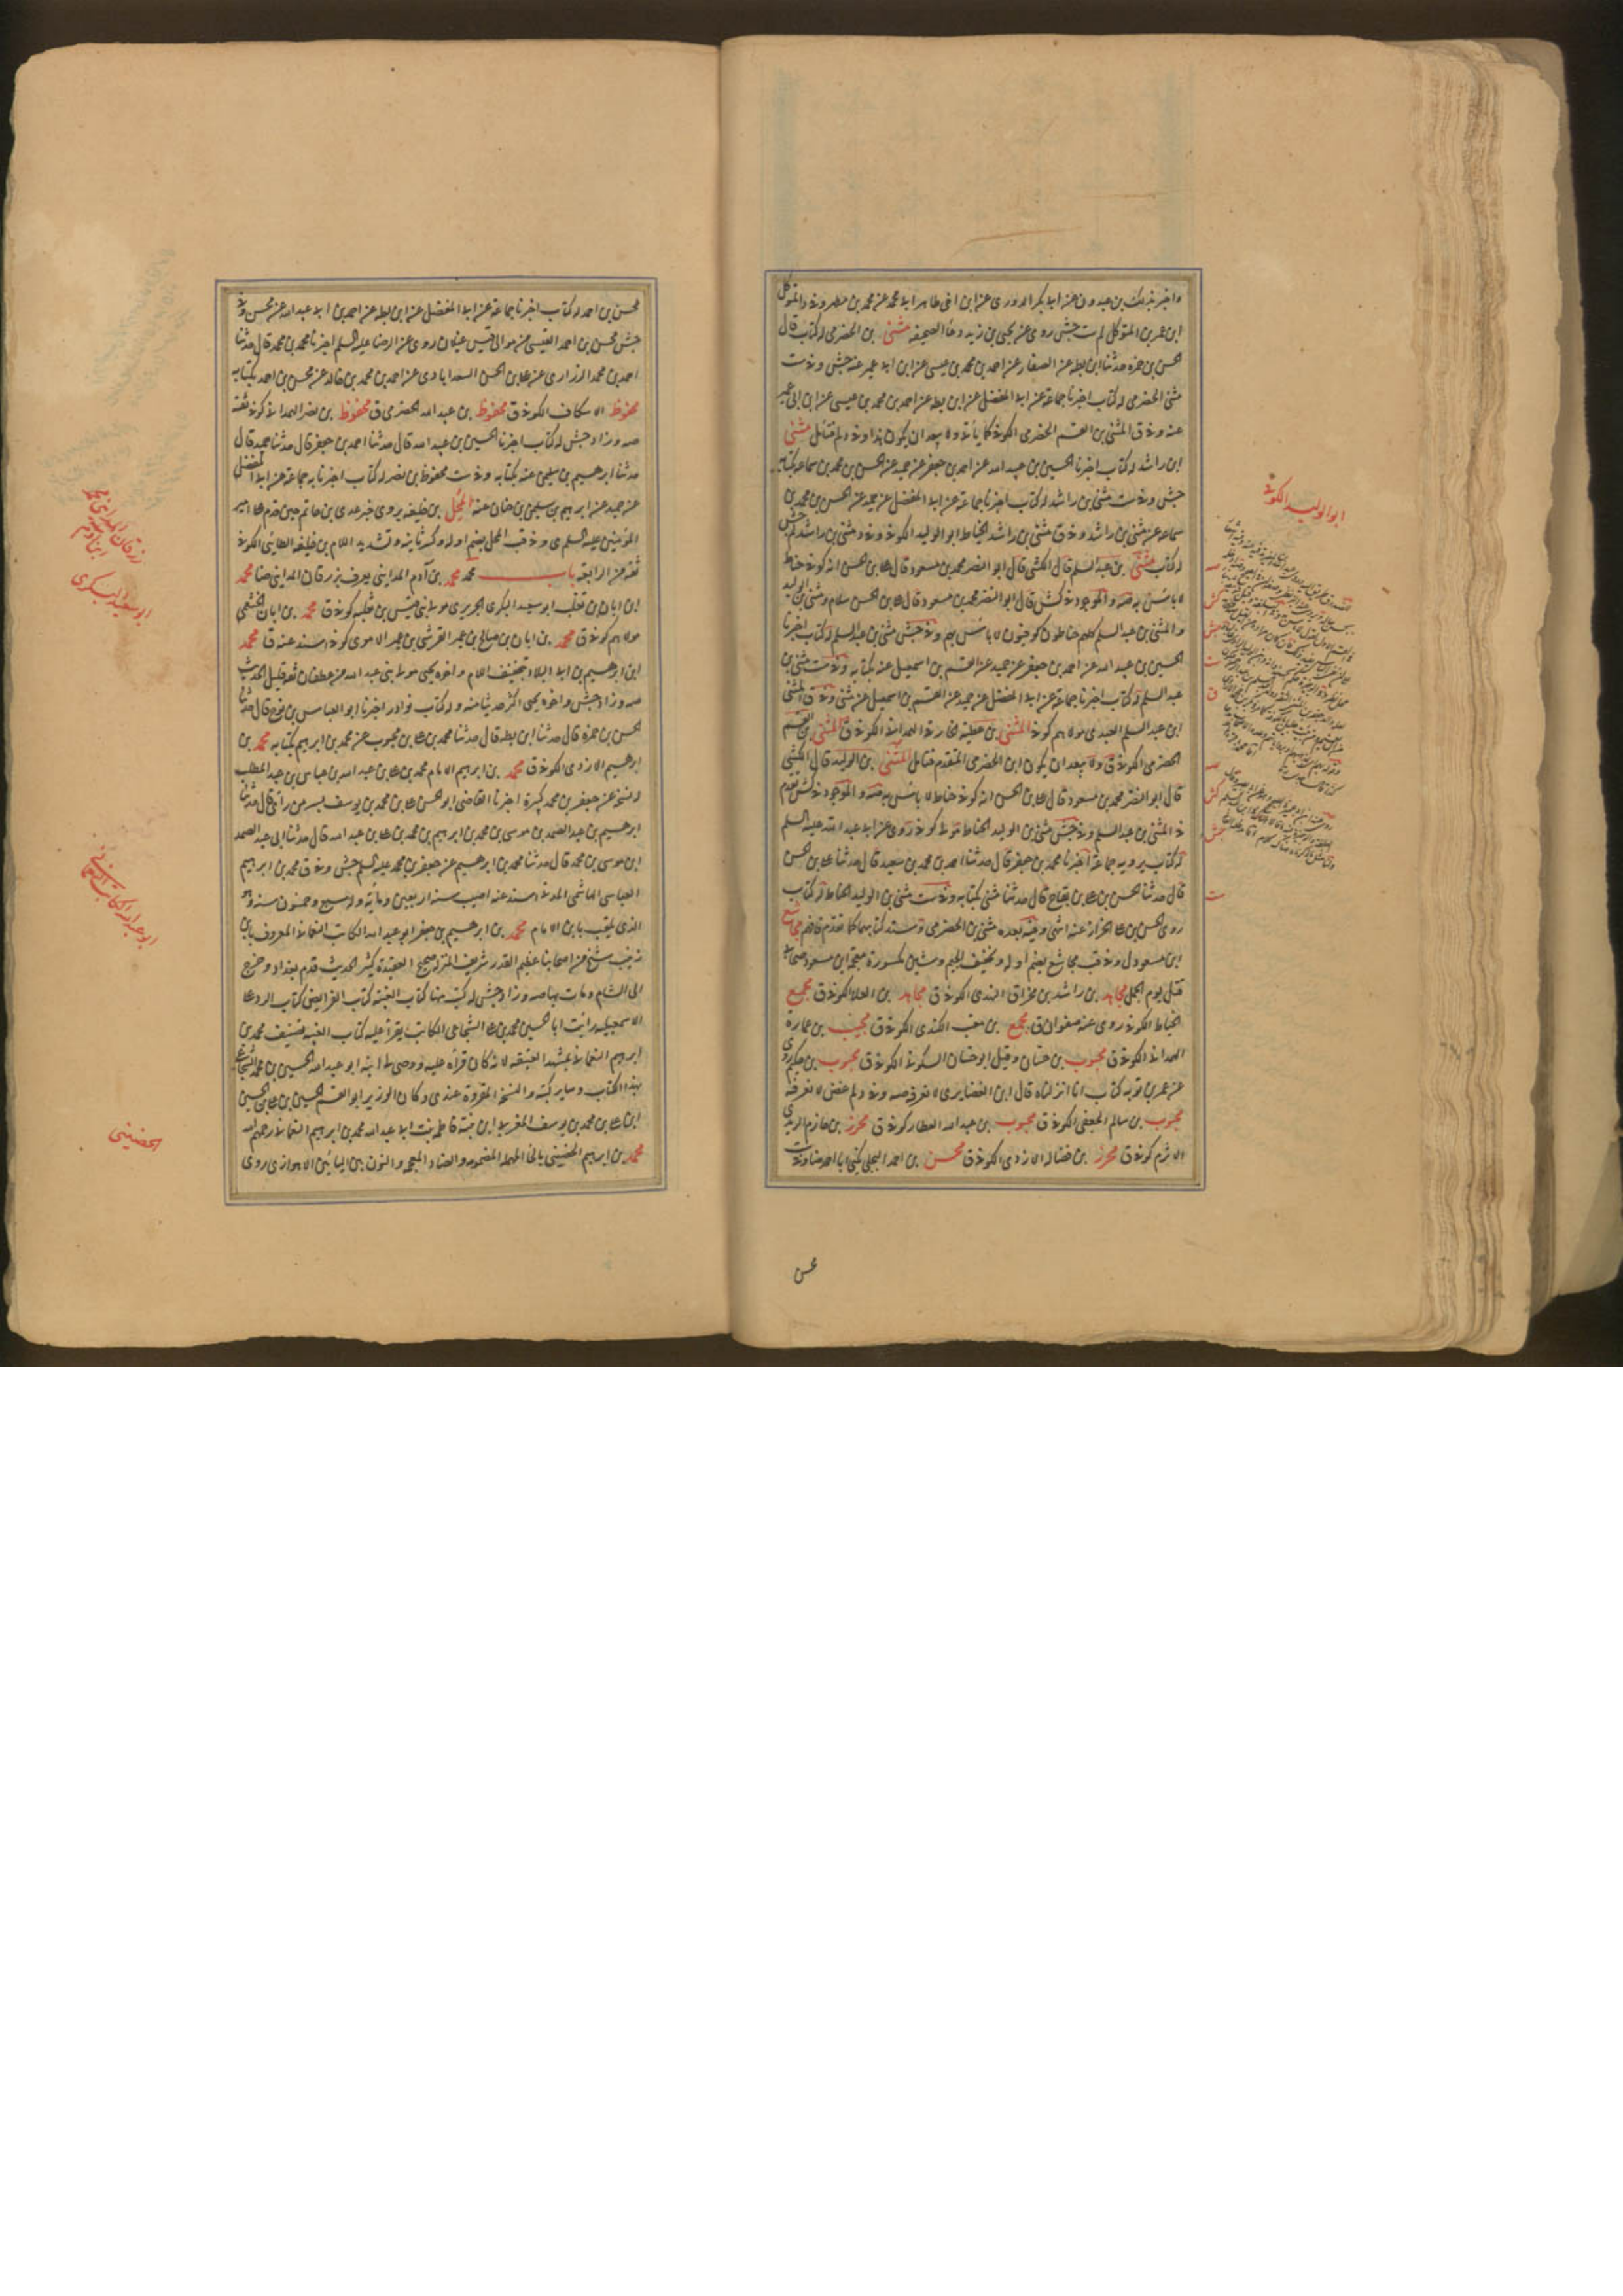 واخبرنا بذلك بن عبدون عن ابى بكر الدورى عن ابن اخى طاهر ابى محمد عن محمد بن مطهر وفى د المتوكل
ابن عمر بن المتوكل لم ست جش روى عن يحيى بن زيد دعاء الصحيفه مثنى بن الحضرمى له كتاب قال
الحسن بن حمزه حدثنا ابن بطه عن الصفار عن احمد بن محمد بن عيسى عن ابن ابى عمير عنه جش وفى ست
مثنى الحضرمى له كتاب اخبرنا جماعة عن ابى المفضل عن ابن بطه عن احمد بن محمد بن عيسى عن ابن ابى عمير
عنه وفى ق المثنى بن القسم الحضرمى الكوفى كما يأتى ولا يبعد ان يكون هذا وفى د لم فتامل مثنى
ابن راشد له كتاب اخبرنا الحسين بن عبيد الله عن احمد بن جعفر عن حميد عن الحسن بن محمد بن سماعه بكتابه
جش وفى ست مثنى بن راشد له كتاب اخبرنا جماعة عن ابى المفضل عن حميد عن الحسن بن محمد بن
سماعه عن مثنى بن راشد وفى ق مثنى بن راشد الخياط ابو الوليد الكوفى وفى د مثنى بن راشد لم جش
له كتاب مثنى بن عبد السلم قال الكشى قال ابو النضر محمد بن مسعود قال على بن الحسن انه كوفى حناط
لا باس به صه والموجود فى كش قال ابو النضر محمد بن مسعود قال على بن الحسن سلام ومثنى بن الوليد
والمثنى بن عبد السلم كلهم حناطون كوفيون لا باس بهم وفى جش مثنى بن عبد السلم له كتاب اخبرنا
الحسين بن عبيد الله عن احمد بن جعفر عن حميد عن القسم بن اسمعيل عنه بكتابه وفى ست مثنى بن
عبد السلم له كتاب اخبرنا جماعة عن ابى المفضل عن حميد عن القسم بن اسمعيل عن مثنى وفى ق المثنى
ابن عبد السلم العبدى مولاهم كوفى المثنى بن عطيه الحارثى الهمدانى الكوفى ق المثنى بن القسم
الحضرمى الكوفى ق ولا يبعد ان يكون ابن الحضرمى المتقدم فتامل المثنى بن الوليد قال الكشى
قال ابو النضر محمد بن مسعود قال على بن الحسن انه كوفى حناط لا باس به صه والموجود فى كش تقدم
فى المثنى بن عبد السلم وفى جش مثنى بن الوليد الحناط مولى كوفى روى عن ابى عبد الله عليه السلم
له كتاب يرويه جماعة اخبرنا محمد بن جعفر قال حدثنا احمد بن محمد بن سعيد قال حدثنا على بن الحسن
قال حدثنا الحسن بن على بن بقاح قال حدثنا مثنى بكتابه وفى ست مثنى بن الوليد الحناط له كتاب
روى الحسن بن على الخزاز عنه انتهى وفيه بعده مثنى بن الحضرمى وسند كتابهما كما تقدم فافهم مجاشع
ابن مسعود ل وفى قب مجاشع بضم اوله وتخفيف الجيم وشين مكسورة معجمة ابن مسعود صحابى
قتل يوم الجمل مجاهد بن راشد بن مخراق النهدى الكوفى ق مجاهد بن العلا الكوفى ق مجمع
الخياط الكوفى روى عنه صفوان ق مجمع بن متعب الكندى الكوفى ق مجيب بن عمارة
الهمدانى الكوفى ق محبوب بن حسان وقيل ابو حسان السكونى الكوفى ق محبوب بن حكيم روى
عن عمر بن توبه كتاب انا انزلناه قال ابن الغضايرى لا نعرفه صه وفى د لم غض لا نعرفه
محبوب بن سالم الجعفى الكوفى ق محبوب بن عبد الله العطار كوفى ق محرز بن حازم الربدى
الاثرم كوفى ق محرز بن فضاله الازدى الكوفى ق محسن بن احمد البجلى يكنى ابا احمد ضا وفى ست
ابو الوليد الكوفى
محسن
محسن بن احمد له كتاب اخبرنا جماعة عن ابى المفضل عن ابن بطه عن احمد بن ابى عبد الله عن محسن وفى
جش محسن بن احمد القيسى من موالى قيس عيلان روى عن الرضا عليه السلم اخبرنا محمد بن محمد قال حدثنا
احمد بن محمد الزرارى عن على بن الحسن السعدابادى عن احمد بن محمد بن خالد عن محسن بن احمد بكتابه
محفوظ الاسكاف الكوفى ق محفوظ بن عبد الله الحضرمى ق محفوظ بن نصر الهمدانى كوفى ثقة
صه وزاد جش له كتاب اخبرنا الحسين بن عبيد الله قال حدثنا احمد بن جعفر قال حدثنا حميد قال
حدثنا ابرهيم بن سليمن عنه بكتابه وفى ست محفوظ بن نصر له كتاب اخبرنا به جماعة عن ابى المفضل
عن حميد عن ابرهيم بن سليمن بن حنان عنه المحل بن خليفه يروى خبر عدى بن حاتم حين قدم على امير
المؤمنين عليه السلم ى وفى قب المحل بضم اوله وكسر ثانيه وتشديد اللام بن خليفه الطائى الكوفى
ثقة من الرابعة باب محمد محمد بن آدم المداينى يعرف بزرقان المداينى ضا محمد
ابن ابان بن تغلب ابو سعيد البكرى الجريرى مولى بنى قيس بن ثعلبه كوفى ق محمد بن ابان الخثعمى
مولاهم كوفى ق محمد بن ابان بن صالح بن عمير القرشى بن عمير الاموى كوفى اسند عنه ق محمد
ابن ابرهيم بن ابى البلاد بتخفيف اللام واخوه يحيى مولى بنى عبد الله من غطفان ثقة قليل الحديث
صه وزاد جش واخوه يحيى اكثر حديثا منه وله كتاب نوادر اخبرنا ابو العباس بن نوح قال حدثنا
الحسن بن حمزه قال حدثنا ابن بطه قال حدثنا محمد بن على بن محبوب عن محمد بن ابرهيم بكتابه محمد بن
ابرهيم الازدى الكوفى ق محمد بن ابرهيم الامام محمد بن على بن عبد الله بن عباس بن عبد المطلب
له نسخة عن جعفر بن محمد كبيرة اخبرنا القاضى ابو الحسن على بن محمد بن يوسف بسر من راى قال حدثنا
ابرهيم بن عبد الصمد بن موسى بن محمد بن ابرهيم بن محمد بن على بن عبد الله قال حدثنا ابى عبد الصمد
ابن موسى بن محمد قال حدثنا محمد بن ابرهيم عن جعفر بن محمد عليه السلم جش وفى ق محمد بن ابراهيم
العباسى الهاشمى المدنى اسند عنه اصيب سنه اربعين ومائة وله سبع وخمسون سنه وهو
الذى يلقب بابن الامام محمد بن ابرهيم بن جعفر ابو عبد الله الكاتب النعمانى المعروف بابن
زينب شيخ من اصحابنا عظيم القدر شريف المنزله صحيح العقيدة كثير الحديث قدم بغداد وخرج
الى الشام ومات بها صه وزاد جش له كتب منها كتاب الغيبة كتاب الفرايض كتاب الرد على
الاسمعيليه رايت ابا الحسين محمد بن على الشجاعى الكاتب يقرأ عليه كتاب الغيبه تصنيف محمد بن
ابرهيم النعمانى بمشهد العتيقه لانه كان قرأه عليه ووصى لى ابنه ابو عبد الله الحسين بن محمد الشجاعى
بهذا الكتاب وساير كتبه والنسخة المقروة عندى وكان الوزير ابو القسم الحسين بن على بن الحسين
ابن على بن محمد بن يوسف المغربى ابن بنته فاطمه بنت ابى عبد الله محمد بن ابرهيم النعمانى رحمهم الله
محمد بن ابرهيم الحضينى بالحاء المهملة المضمومه والضاد المعجمه والنون بين اليائين الاهوازى روى
ابو سعيد البكرى
الحضينى